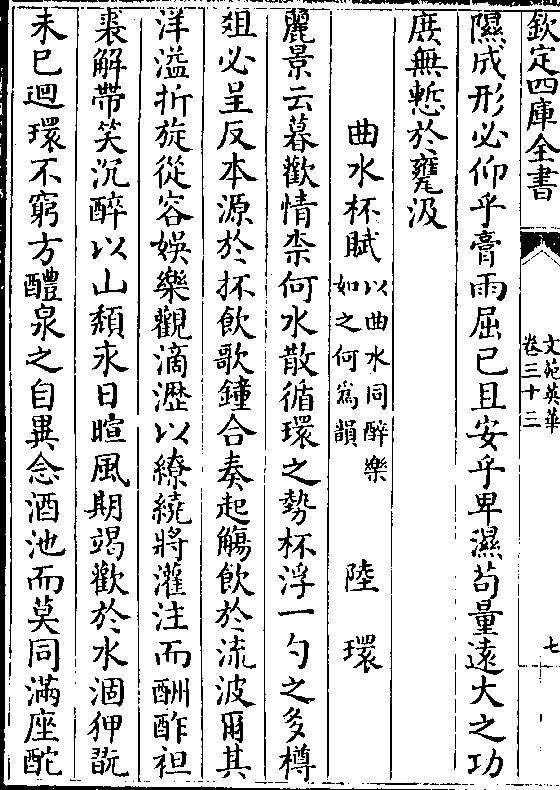 欽定四庫全書
文苑英華
卷三十三
七
隰成形必仰乎膏雨屈已且安乎卑濕茍量遠大之功
庶無慙於甕汲
曲水杯賦
以曲水同醉樂
如之何爲韻
陸環
麗景云暮歡情柰何水散循環之勢杯浮一勺之多樽
俎必呈反本源於抔飲歌鐘合奏起觴飲於流波爾其
洋溢折旋從容娛樂觀滴瀝以繚繞將灌注而酬酢袒
裘解帶笑沉醉以山頽永日暄風期竭歡於水涸狎翫
未已廻環不窮方醴泉之自異念酒池而莫同滿座酡